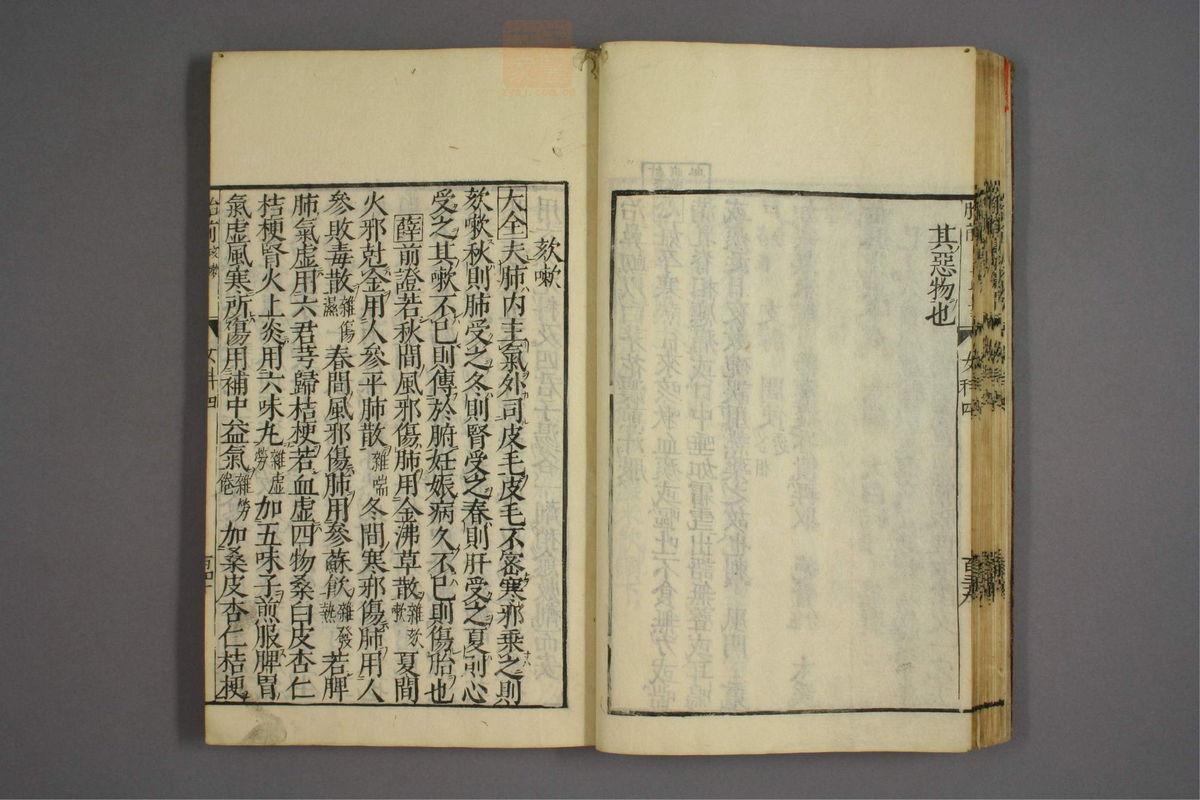 其惡物也
女科四
欬嗽
大全夫肺内主氣外司皮毛皮毛不密寒邪乘之則
欬嗽秋則肺受之冬則腎受之春則肝受之夏則心
受之其嗽不已則傳於腑妊娠病久不已則傷胎也
薛前證若秋間風邪傷肺用金沸草散雜欬嗽夏間
火邪尅金用人參平肺散雜喘冬間寒邪傷肺用人
參敗毒散雜傷濕春間風邪傷肺用參蘇飲雜發熱若脾
肺氣虚用六君芎歸桔梗若血虚四物桑白皮杏仁
桔梗腎火上炎用六味丸雜虚勞加五味子煎服脾胃
氣虚風寒所傷用補中益氣雜勞倦加桑皮杏仁桔梗
胎前欬嗽
女科四